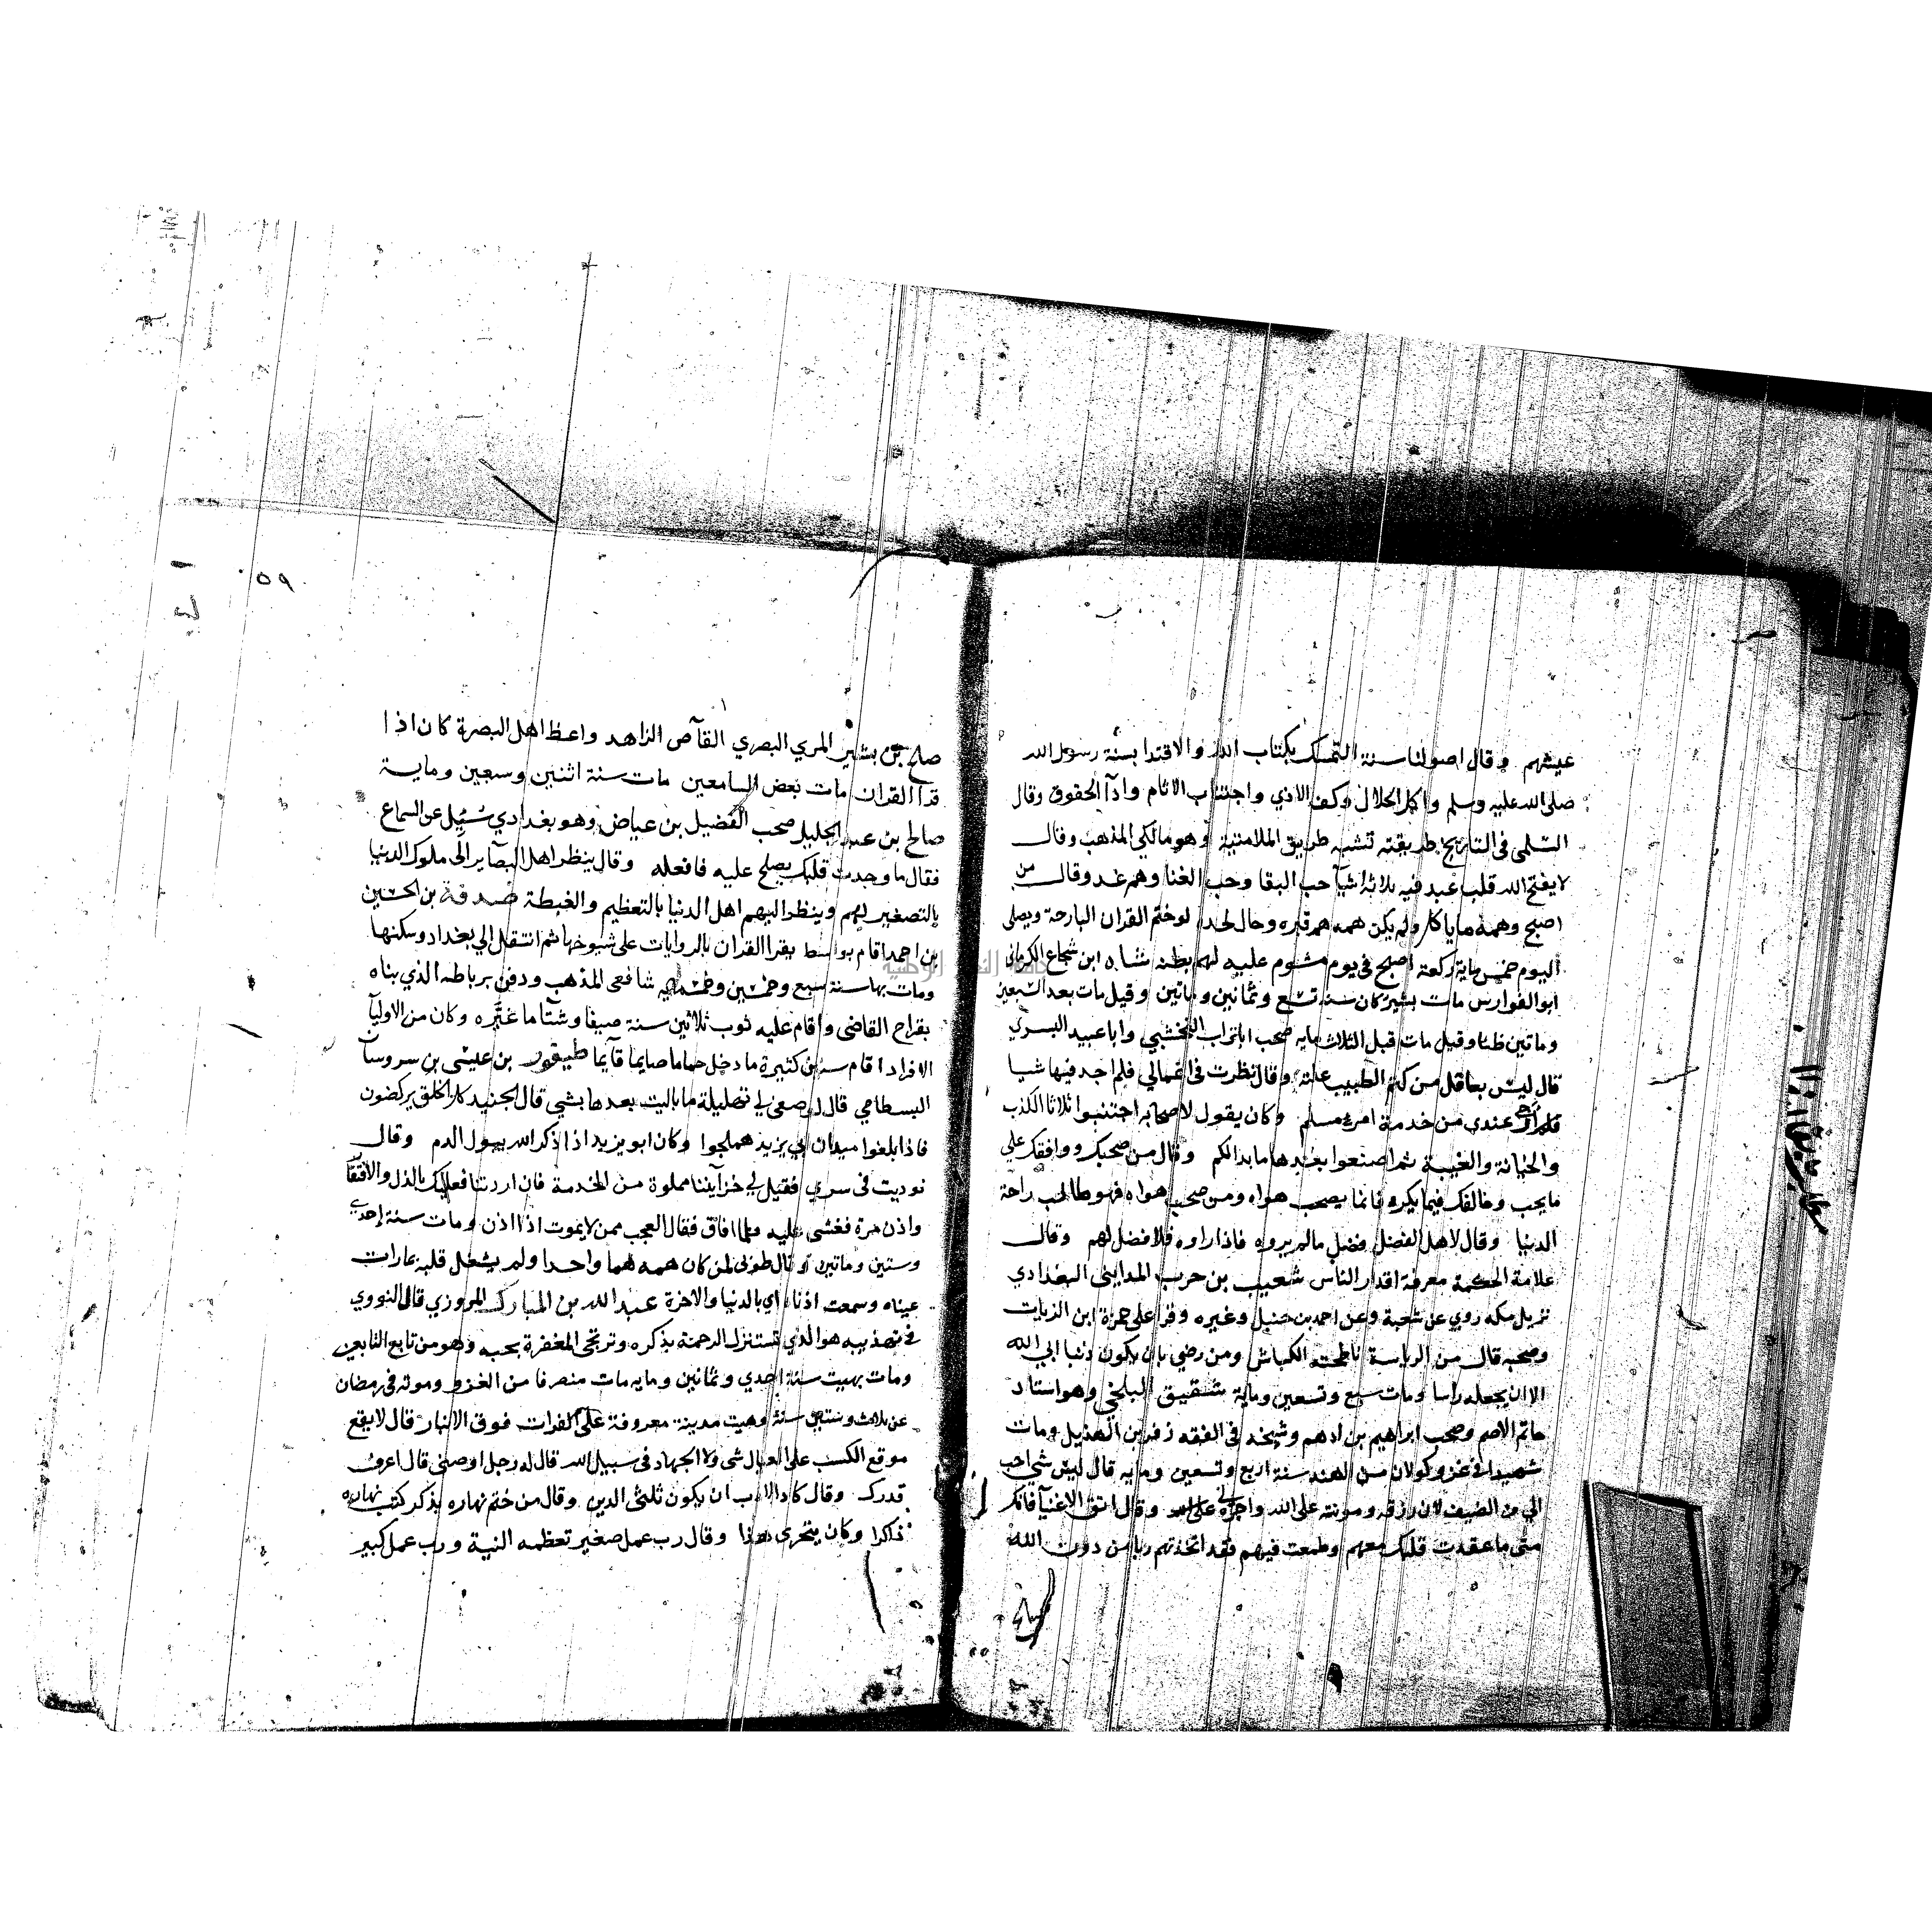 عيشهم وقال اصولنا ستة التمسك بكتاب الله والاقتدا بسنة رسول الله
صلى الله عليه وسلم واكل الحلال وكف الاذي واجتناب الاثام وادآ الحقوق وقال
السلمى فى التاريخ طريقته تشبه طريق الملامتية وهو مالكي المذهب وقال
لا يفتح الله قلب عبد فيه ثلاثة اشيآ حب البقا وحب الغنا وهم غد وقال من
اصبح وهمه ما ياكل ولم يكن همه هم قبره وحال لحده لو ختم القران البارحة ويصلى
اليوم خمس ماية ركعة اصبح فى يوم مشوم عليه لهم بطنه شاه ابن شجاع الكرماني
ابو الفوارس مات سنة تسع وثمانين وماتين وقيل مات بعد السبعين
وماتين ظنا وقيل مات قبل الثلاث مايه صحب اباتراب النخشبي وابا عبيد البسري
قال ليس بعاقل من كتم الطبيب علته وقال نظرت فى اعمالي فلم اجد فيها شيا
عندي من خدمة امرء مسلم وكان يقول لاصحابه اجتنبوا ثلاثا الكذب
والخيانة والغيبة ثم اصنعوا بعدها ما بدالكم وقال من صحبك ووافقك علي
ما يحب وخالفك فيما يكره فانما يصحب هواه ومن صحب هواه فهو طالب راحة
الدنيا وقال لاهل الفضل فضل ما لم يروه فاذا راوه فلا فضل لهم وقال
علامة الحكمة معرفة اقدار الناس شعيب بن حرب المدايني البغدادي
نزيل مكه روي عن شعبة وعن احمد بن حنبل وغيره وقرا على حمزة ابن الزيات
وصحبه قال من الرياسة ناطحته الكباش ومن رضي بان يكون ذنبا ابي الله
الا ان يجعله راسا ومات سبع وتسعين وماية شقيق البلخي وهو استاد
حاتم الاصم وصحب ابراهيم بن ادهم وشيخه في الفقه زفر بن الهذيل ومات
شهيدا فى غزو كولان من الهند سنة اربع وتسعين ومايه قال ليس شي احب
الي من الضيف لان رزقه ومونته على الله واجره وقال اتق الاغنيآ فانك
متى ما عقدت قلبك معهم وطمعت فيهم فقد اتخذتهم ربا من دون الله
صالح
٥٩
صالح بن بشير المري البصري القآص الزاهد واعظ اهل البصرة كان اذا
قرا القران مات بعض السامعين مات سنة اثنين وسبعين وماية
صالح بن عبد الجليل صحب الفضيل بن عياض وهو بغدادي سُئِل عن السماع
فقال ما وجدت قلبك يصلح عليه فافعله وقال ينظر اهل البصآير الى ملوك الدنيا
بالتصغير لهم وينظر اليهم اهل الدنيا بالتعظيم والغبطة صدقة بن الحسين
بن احمد اقام بواسط يقرا القران بالروايات على شيوخها ثم انتقل الي بغداد وسكنها
ومات بها سنة سبع وخمسين وخمسمايه شافعى المذهب ودفن برباطه الذي بناه
بقراح القاضى واقام عليه ثوب ثلاثين سنة صيفا وشتآ ما غيّره وكان من الاوليآ
الافراد اقام سنين كثيرة ما دخل حماما صايما قآيما طيفور بن عيسى بن سروسان
البسطامي قال لو صفى لي تهليلة ما باليت بعدها بشي قال الجنيد كل الخلق يركضون
فاذا بلغوا ميدان ابي يزيد هملجوا وكان ابو يزيد اذا ذكر الله يبول الدم وقال
نوديت فى سري فقيل لي خزآيننا مملوة من الخدمة فان اردتنا فعليك بالذل والافتقآر
واذن مرة فغشى عليه فلما افاق فقال العجب ممن لا يموت اذا اذن ومات سنة احدي
وستين وماتين وقال طوبى لمن كان همه هما واحدا ولم يشغل قلبه بما رات
عيناه وسمعت اذناه اي بالدنيا والاخرة عبد الله بن المبارك المروزي قال النووي
فى تهذيبه هو الذي تستنزل الرحمة بذكره وترتجى المغفرة بحبه وهو من تابع التابعين
ومات بهيت سنة احدي وثمانين ومايه مات منصرفا من الغزو وموته فى رمضان
عن ثلاث وستين سنة وهيت مدينة معروفة على الفرات فوق الانبار قال لا يقع
موقع الكسب على العيال شى ولا الجهاد فى سبيل الله قال له رجل اوصنى قال اعرف
قدرك وقال كاد الادب ان يكون ثلثى الدين وقال من ختم نهاره بذكر كتب نهاره
ذاكرا وكان يتحرى هذا وقال رب عمل صغير تعظمه النية ورب عمل كبير